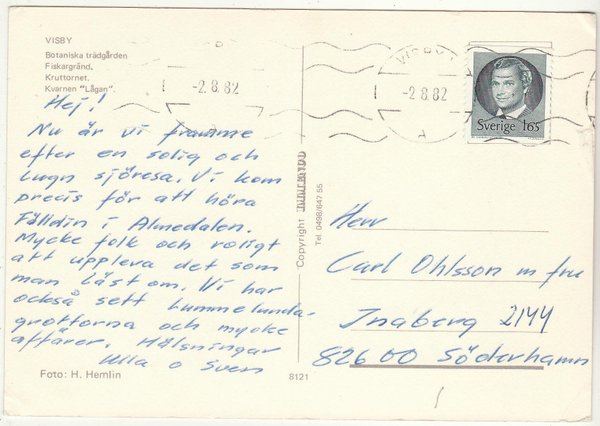 VISBY
Botaniska trädgården
Fiskargränd.
Kruttornet.
Kvarnen "Lågan".
Hej!
Nu är vi framme
efter en solig och
lugn sjöresa. Vi kom
precis för att höra
Fälldin i Almedalen.
Mycke folk och roligt
att uppleva det som
man läst om. Vi har
också sett Lummelunda-
grottorna och mycke
affärer. Hälsningar
Ulla o Sven
Foto: H. Hemlin
8121
Copyright
Tel. 0498/647 55
VISBY
-2.8.82
A
-2.8.82
Sverige 165
Herr
Carl Ohlsson m fru
Inaberg 2144
826 00 Söderhamn